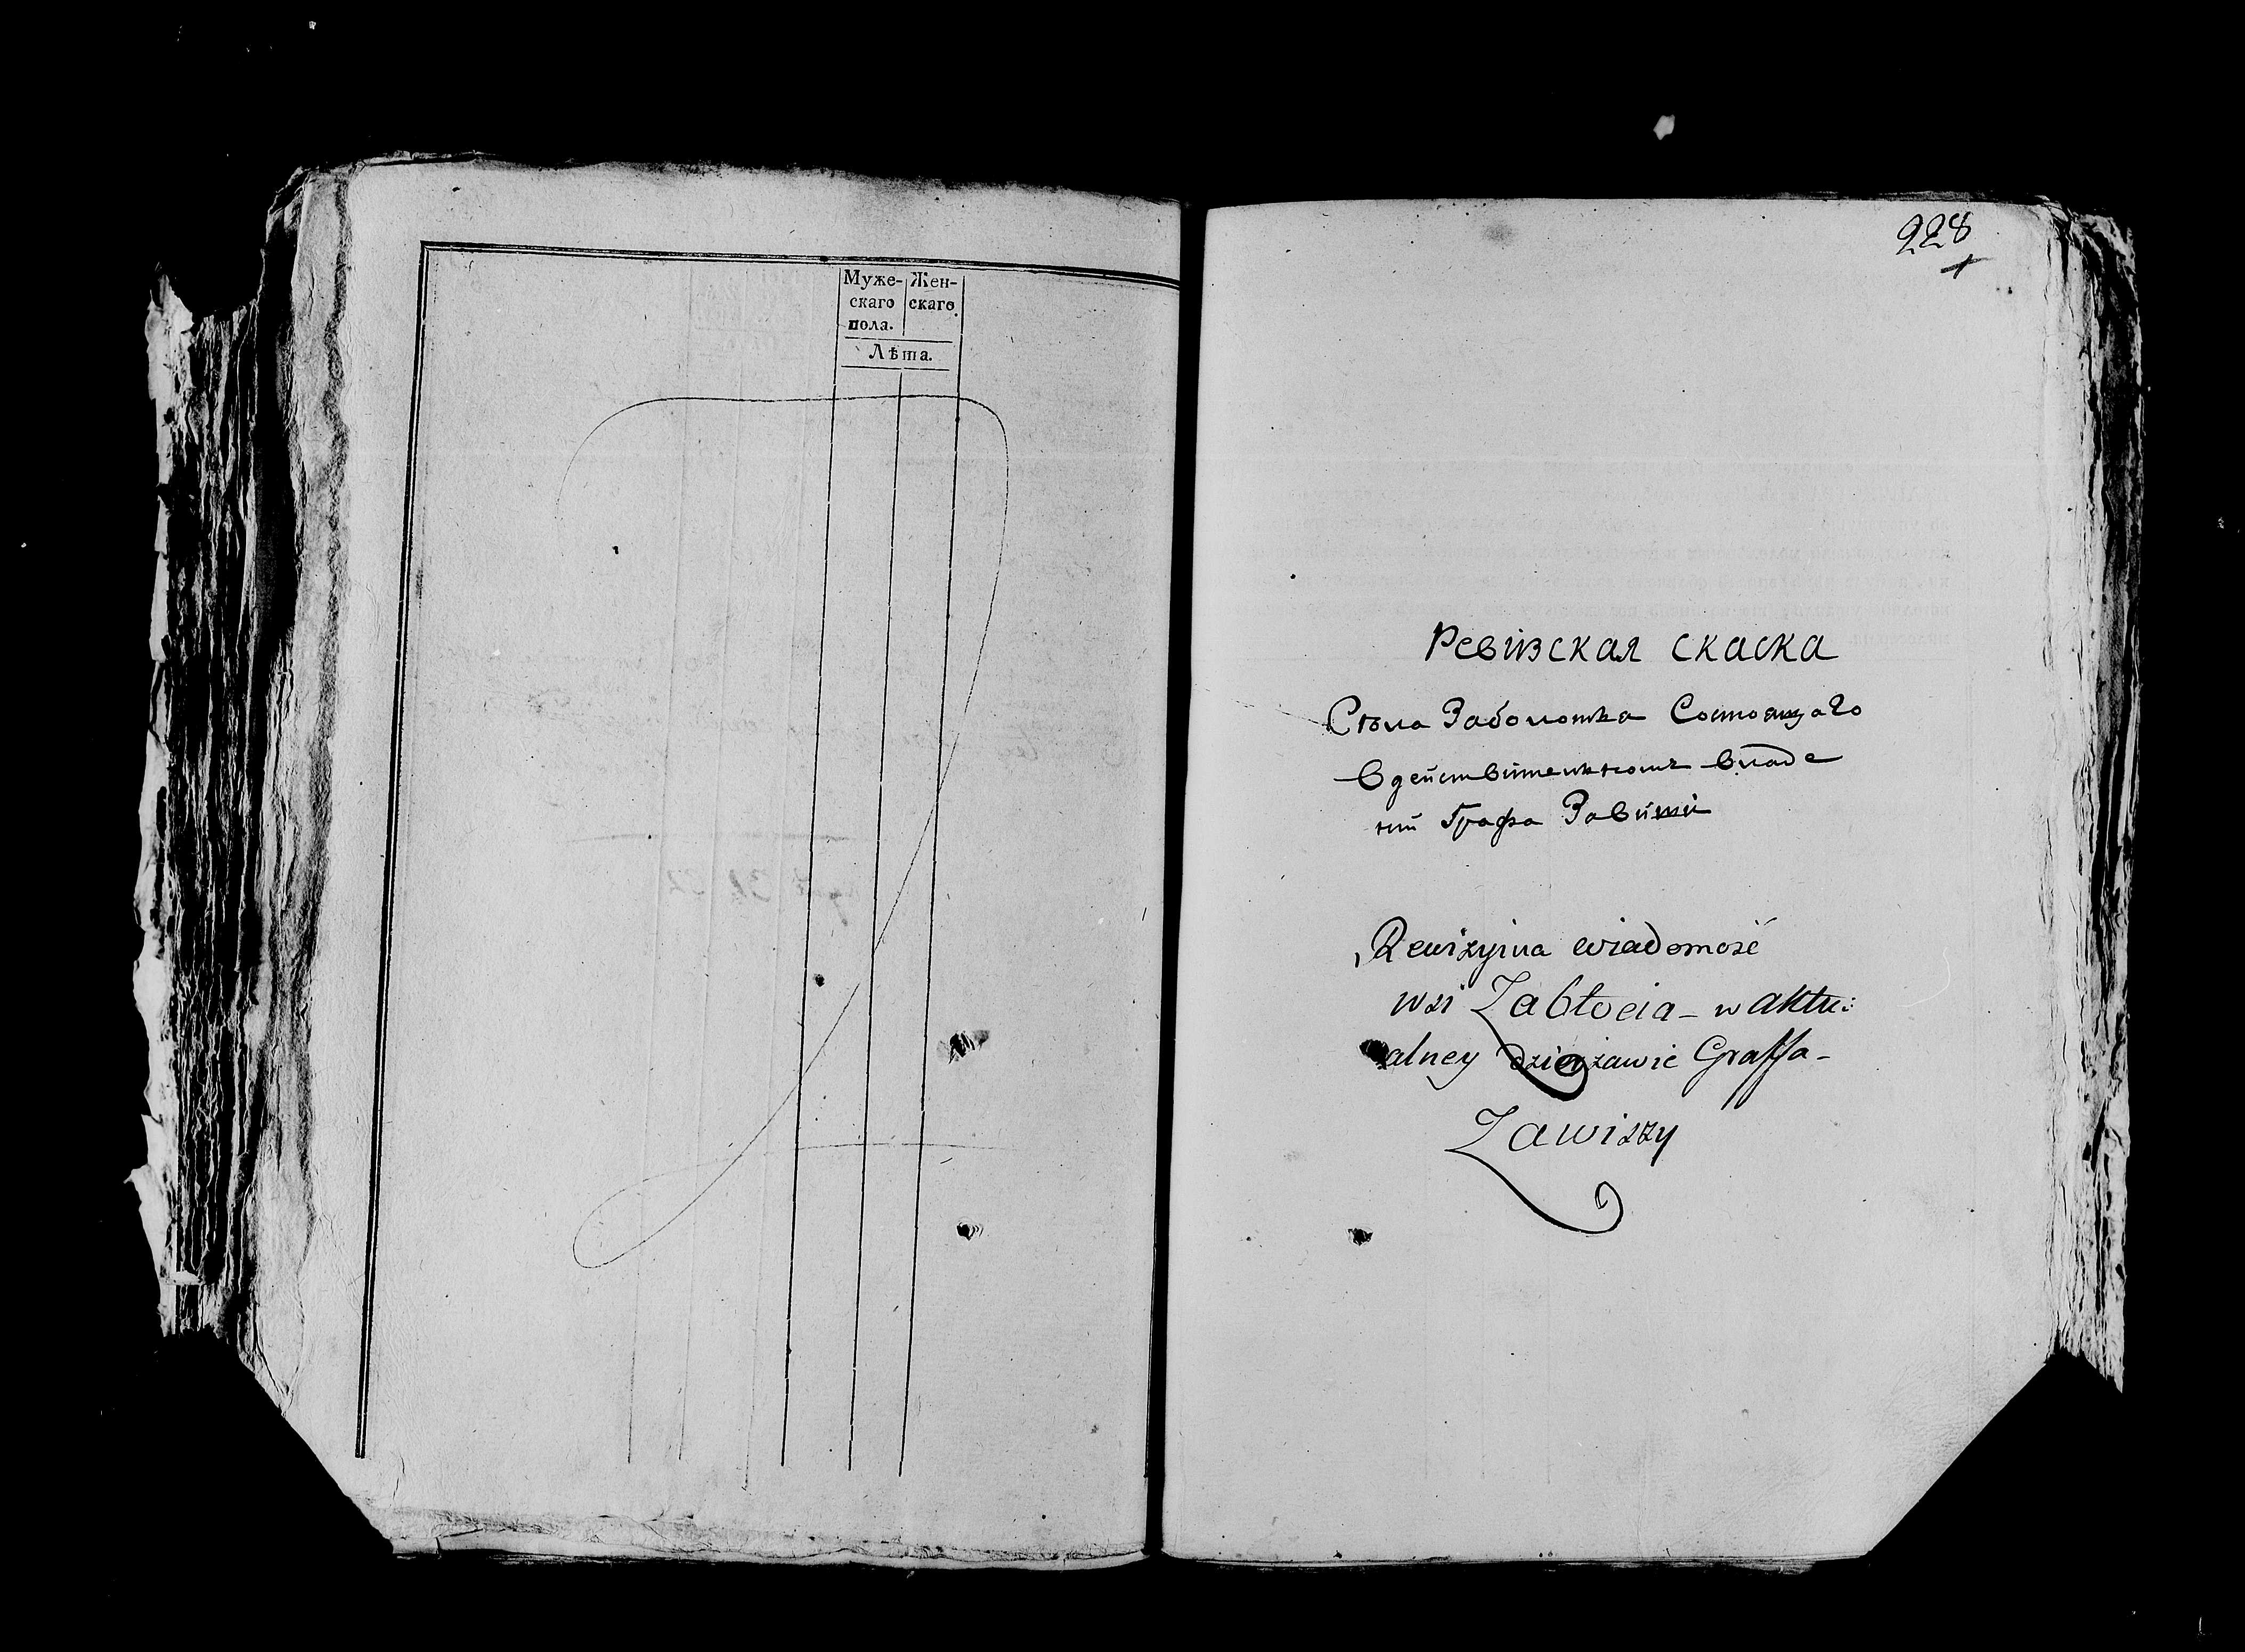 Муже- Жен-
скаго скаго.
пола.
Лѣта.
228
Ревизская скаска
Стьла Заболотья Состоящаго
в действительномъ владе
нии Графа Завиши
Rewizyina wiadomość
wsi Zabłocia - w aktu:
alney dzierżawie Graffa -
Zawiszy